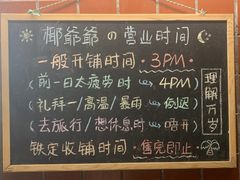 椰爺爺の营业时间
一般开铺时间·3PM·
(前一日太疲劳时→4PM)
(礼拜一/高温/暴雨→倒迟)
(去旅行/想休息时→唔开)
铁定收铺时间·售完即止·
理解万岁